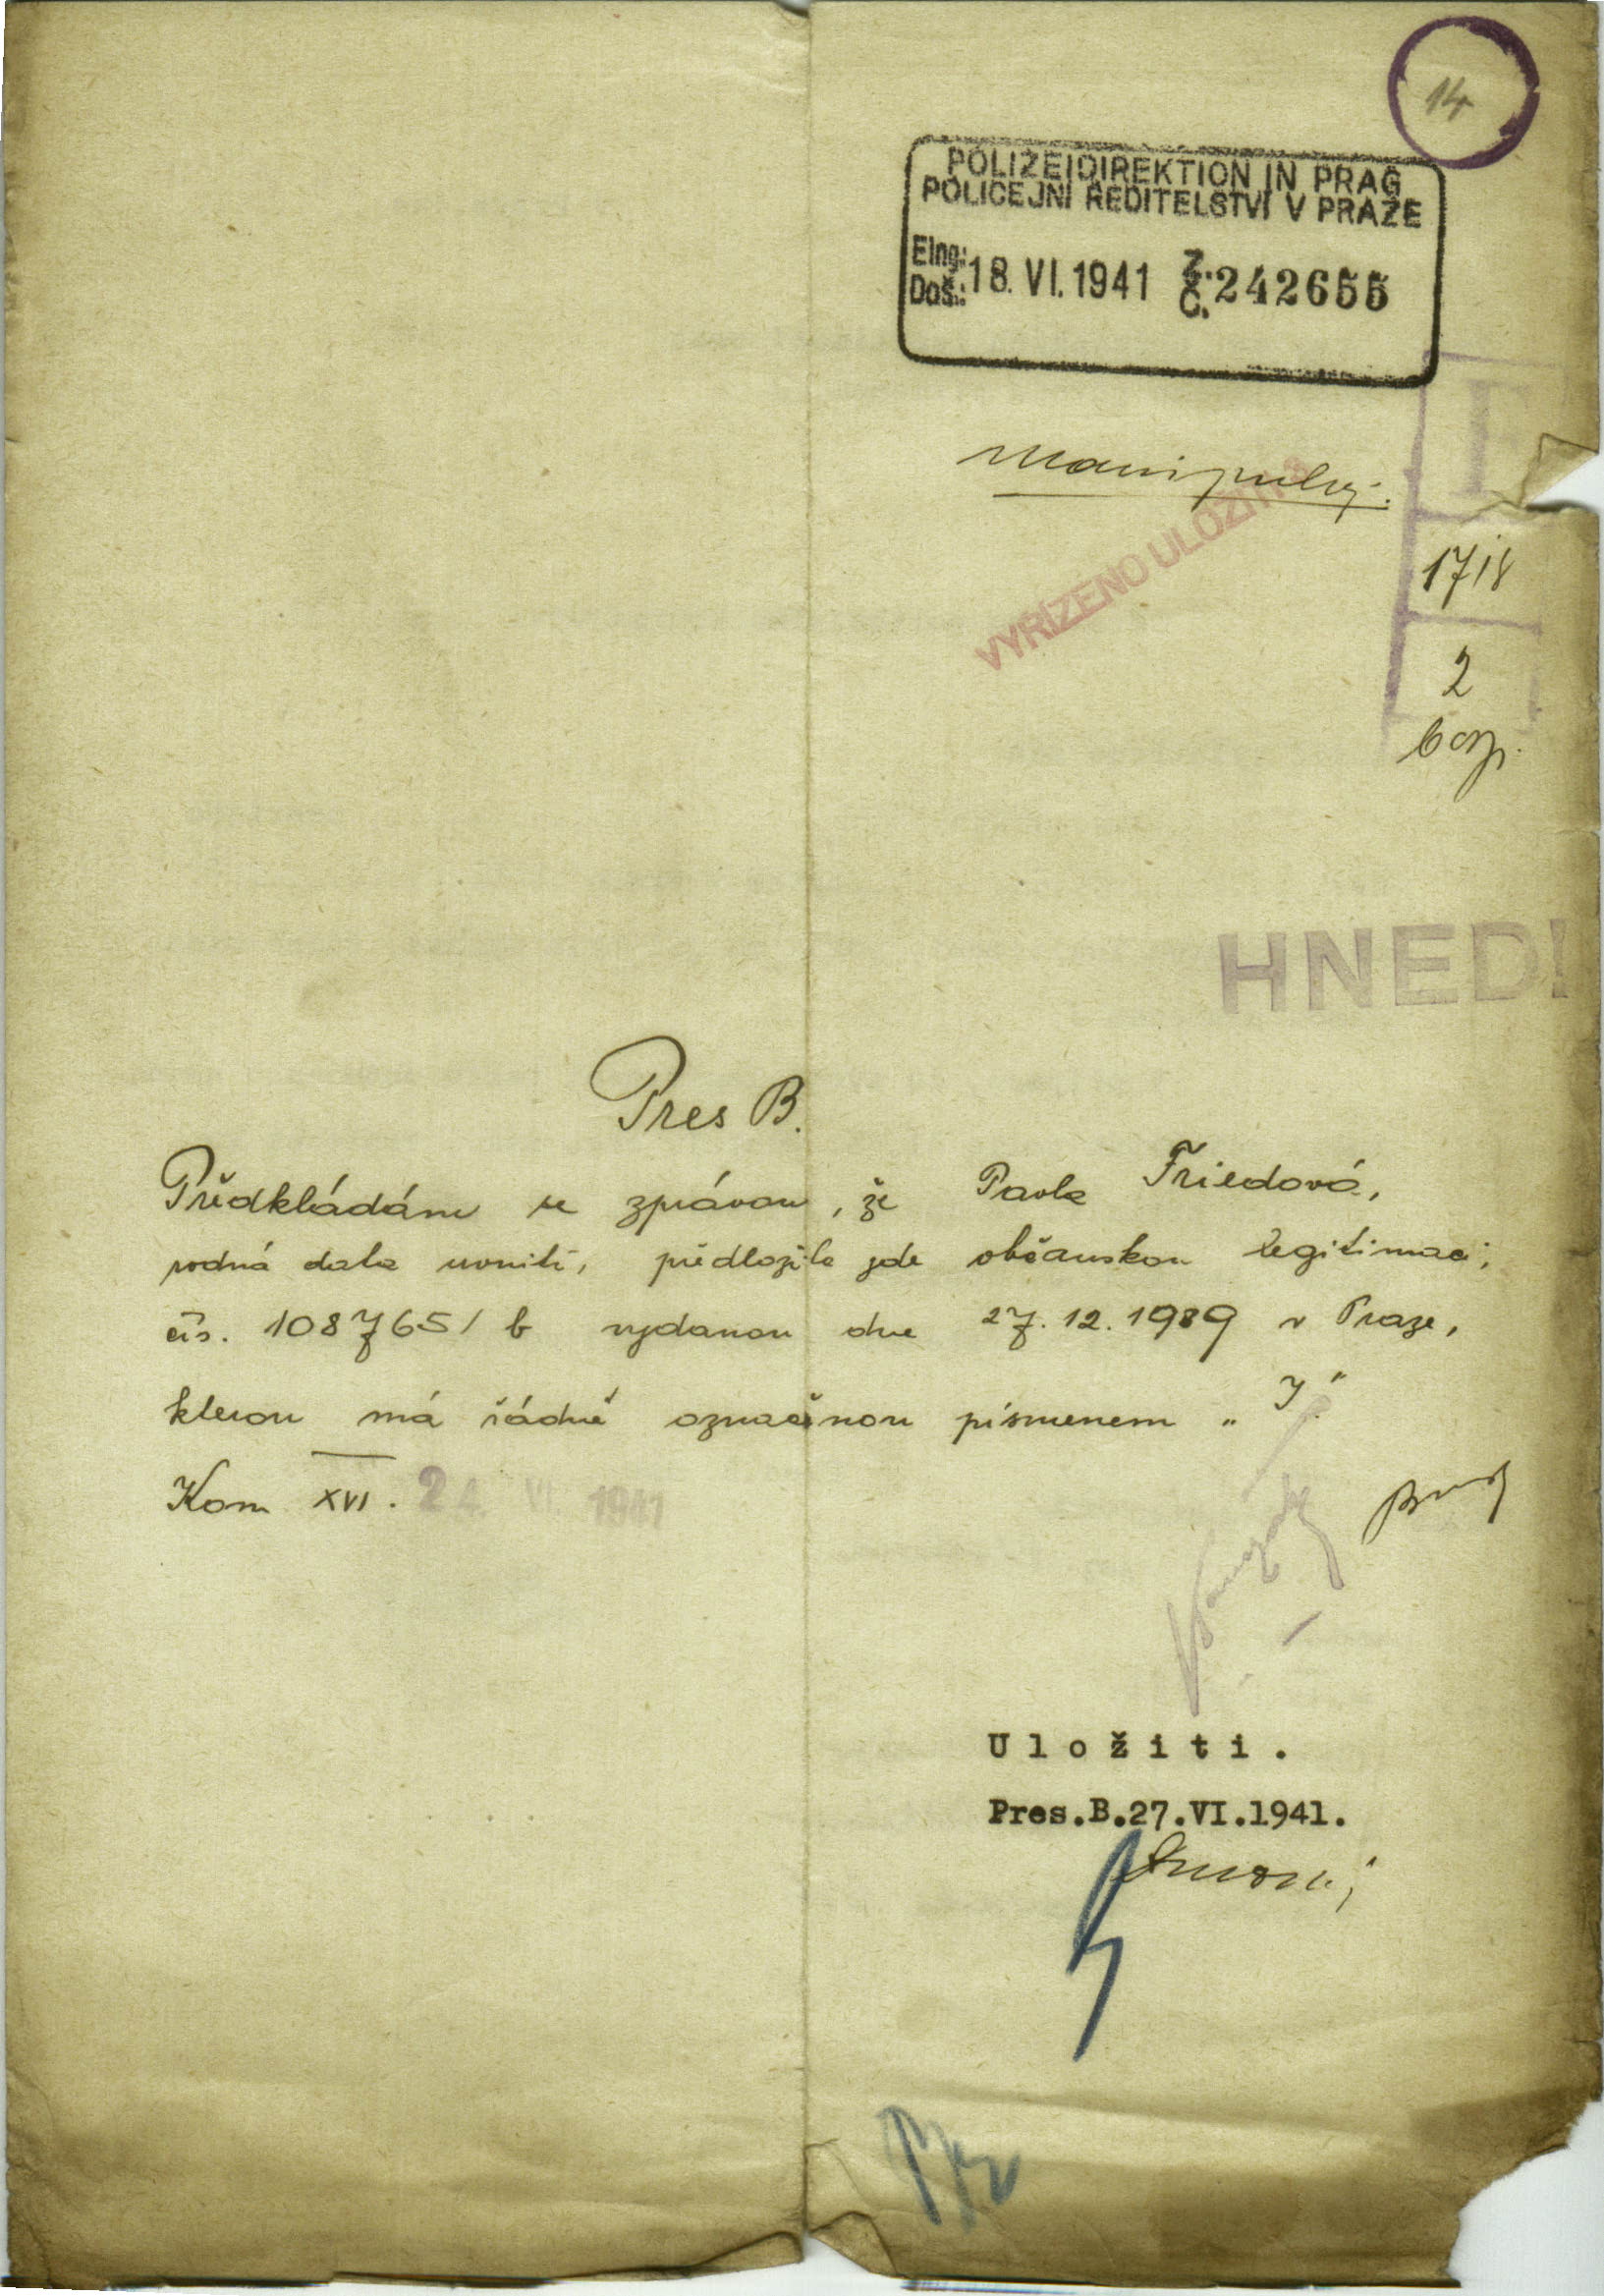 14
POLIZEIDIREKTION IN PRAG
POLICEJNÍ ŘEDITELSTVÍ V PRAZE
Eing.:
Doš.: 18. VI. 1941 Z. Č. 242655
VYŘÍZENO ULOŽITI
2
HNED!
Pres B.
Předkládám se zprávou, že Pavla Friedová,
rodná data uvnitř, předložila zde občanskou legitimaci,
čís. 1087651/b vydanou dne 27.12.1939 v Praze,
kterou má řádně označenou písmenem „J“.
Kom XVI. 24. VI. 1941
Uložiti.
Pres.B.27.VI.1941.